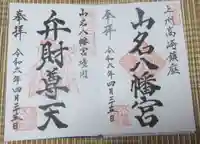 上州高崎鎮座
山名八幡宮
奉拝 令和六年四月二十五日
山名八幡宮境内
弁財尊天
奉拝 令和六年四月二十五日